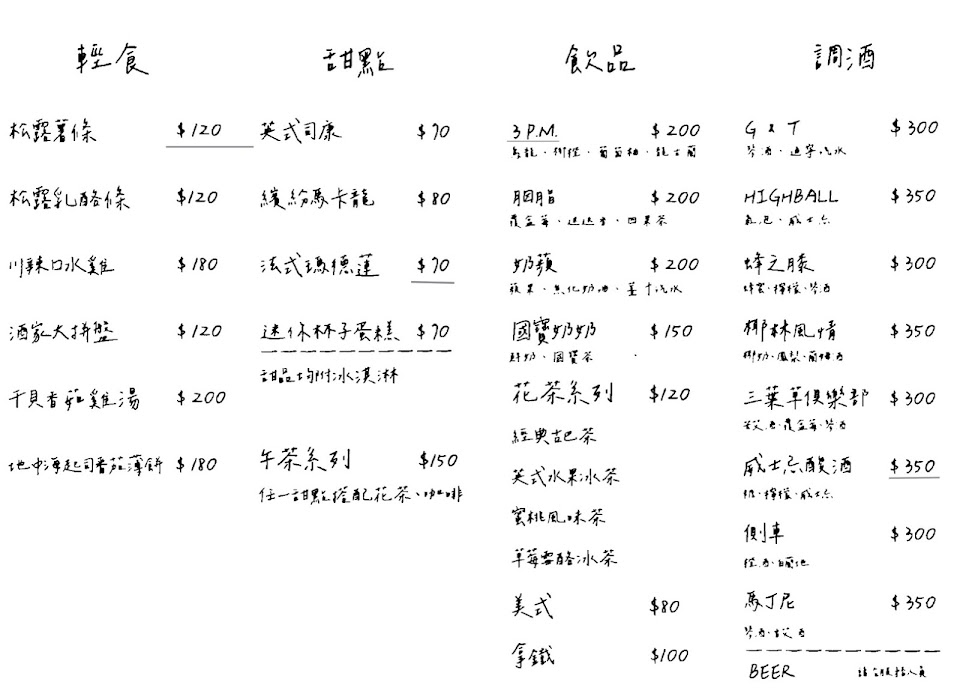 輕食
松露薯條 $120
松露乳酪條 $120
川辣口水雞 $180
酒家大拼盤 $120
干貝香菇雞湯 $200
地中海起司番茄薄餅 $180
甜點
英式司康 $70
繽紛馬卡龍 $80
法式瑪德蓮 $70
迷你杯子蛋糕 $70
甜品均附冰淇淋
午茶系列 $150
任一甜點搭配花茶、咖啡
飲品
3 P.M. $200
烏龍、柳橙、葡萄柚、龍舌蘭
胭脂 $200
覆盆莓、迷迭香、四果茶
奶蘋 $200
蘋果、焦化奶油、薑汁汽水
國寶奶奶 $150
鮮奶、國寶茶
花茶系列 $120
經典古巴茶
英式水果冰茶
蜜桃風味茶
草莓雲酪冰茶
美式 $80
拿鐵 $100
調酒
G & T $300
琴酒、通寧汽水
HIGHBALL $350
氣泡、威士忌
蜂之膝 $300
蜂蜜、檸檬、琴酒
椰林風情 $350
椰奶、鳳梨、蘭姆酒
三葉草俱樂部 $300
苦艾酒、覆盆莓、琴酒
威士忌酸酒 $350
檸檬、威士忌
側車 $300
橙酒、白蘭地
馬丁尼 $350
琴酒、苦艾酒
BEER 請洽服務人員